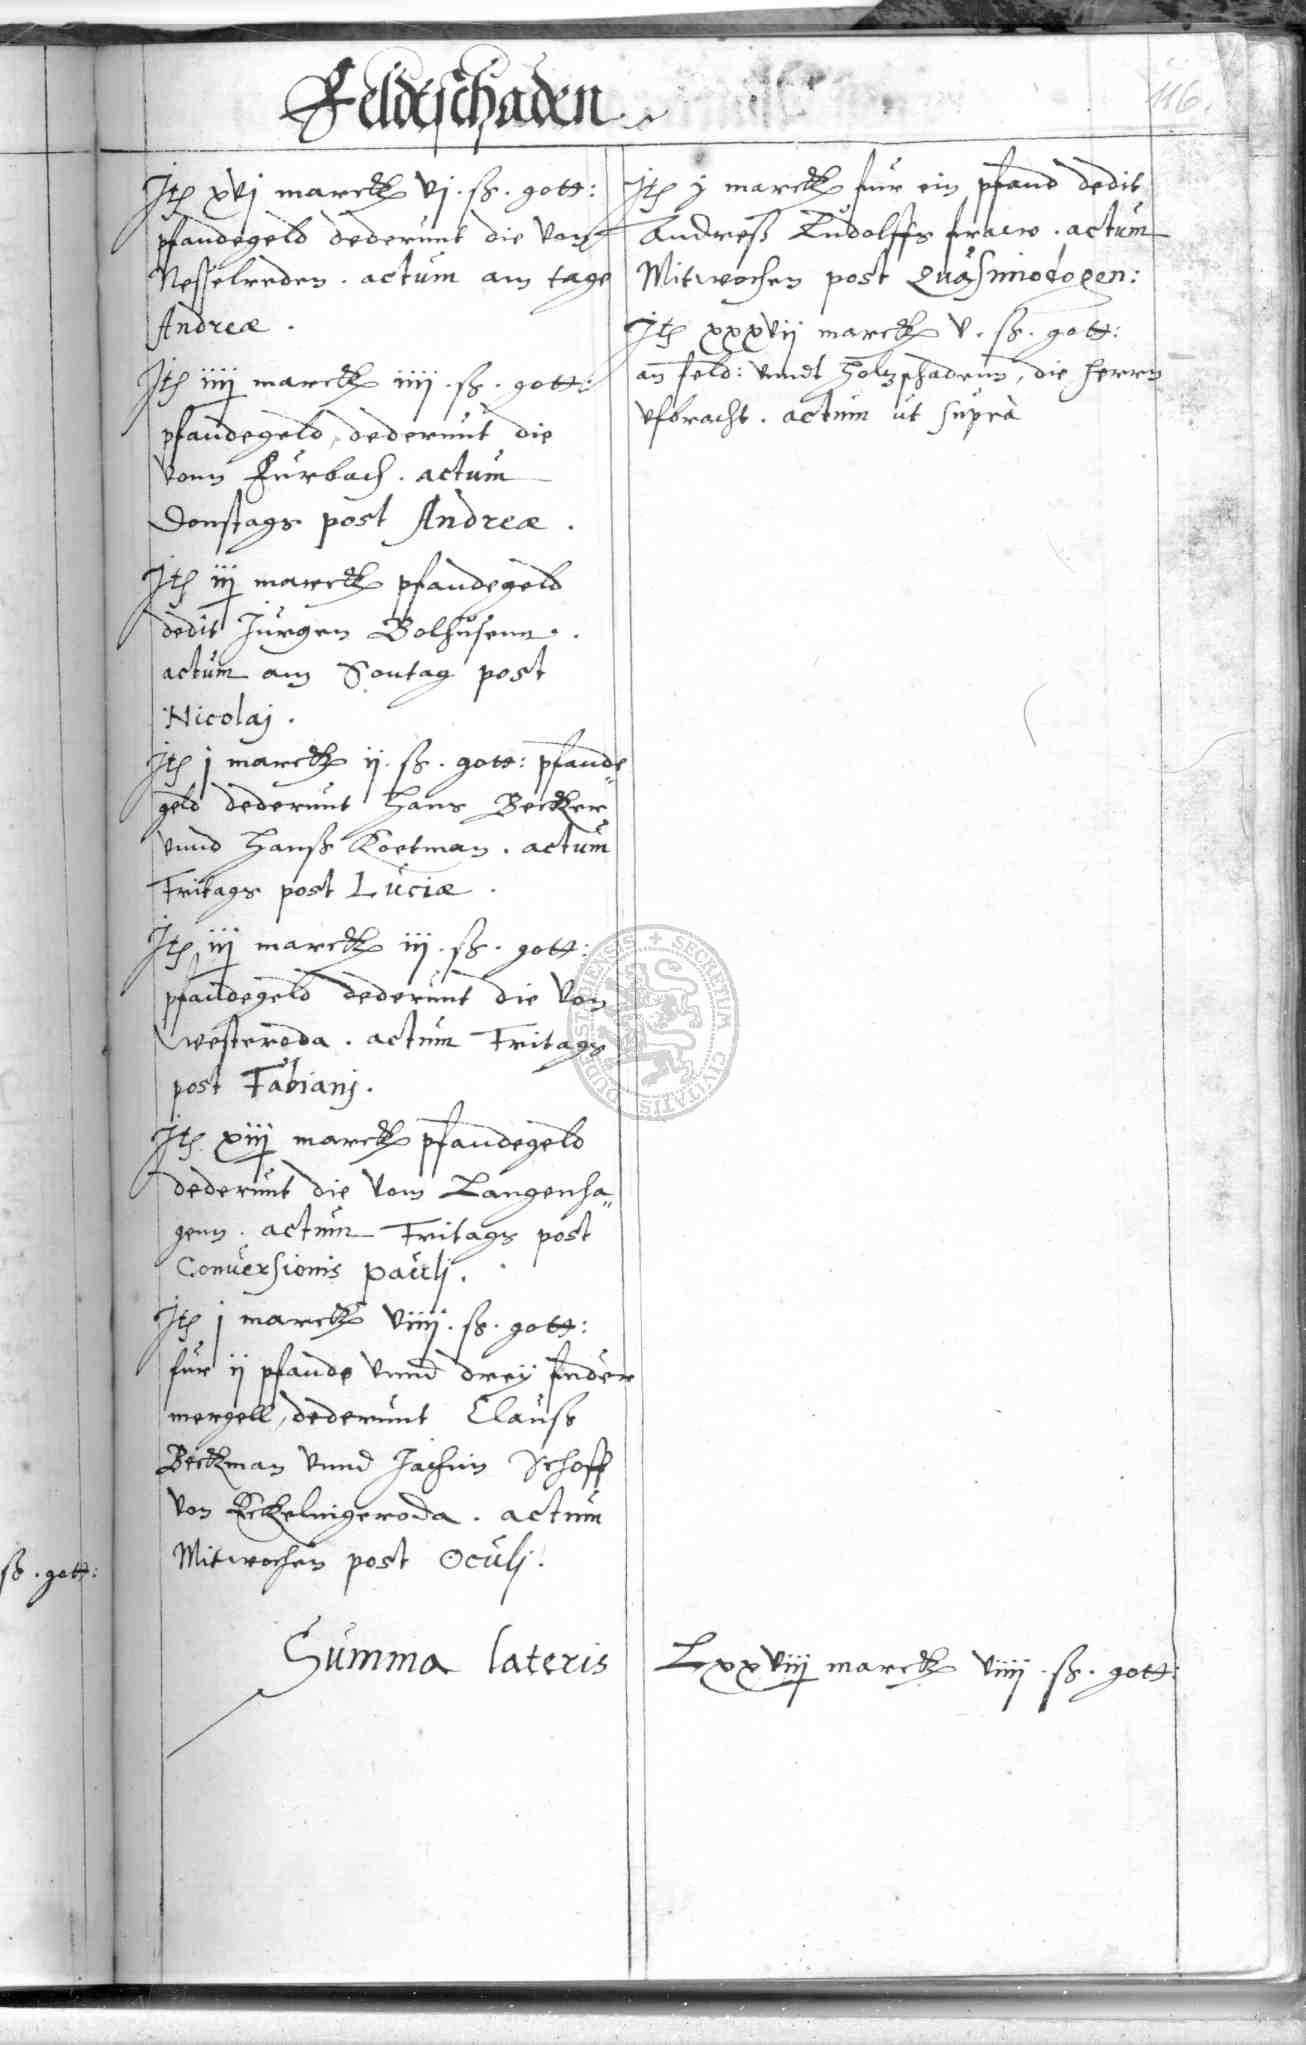 Feldtschaden
116.
Jt̃ xvj marck vj . ß . gott:
pfandegeld dederunt die von
Nesselreden . actum am tage
Andreæ .
Jt̃ iiij marck iiij . ß . gott:
pfandegeld, dederunt die
vonn Furbach . actum
Donstags post Andreæ .
Jt̃ iij marck pfandegeld
dedit Jurgen Bolhusenn .
actum am Sontag post
Nicolaj .
Jt̃ j marck ij . ß . gott: pfande„
geld dederunt Hans Becker
vnnd Hanß Koetman . actum
Fritags post Luciæ .
Jt̃ iij marck iij . ß . gott:
pfandegeld dederunt die von
westeroda . actum Fritags
post Fabianj .
Jt̃ xiij marck pfandegeld
dederunt die vom Langenha„
genn . actum Fritags post
Conuersionis pauli .
Jt̃ j marck viiij . ß . gott:
fur ij pfande vnnd drey fuder
mergell, dederunt Clauß
Beckman vnnd Jachim Schoff
von Eckelnigeroda . actum
Mitwochen post Oculj .
Jt̃ j marck fur ein pfand dedit
Andreß Ludolffs fraew . actum
Mitwochen post Quasimodogen:
Jt̃ xxxvij marck v . ß . gott:
an feld: vnndt holtzschadenn, die herrn
vfbracht . actum ut supra
ß . gott:
Summa lateris Lxxviij marck viiij . ß . gott:
SECRETUM CIVITATIS DUDERSTADIENSIS